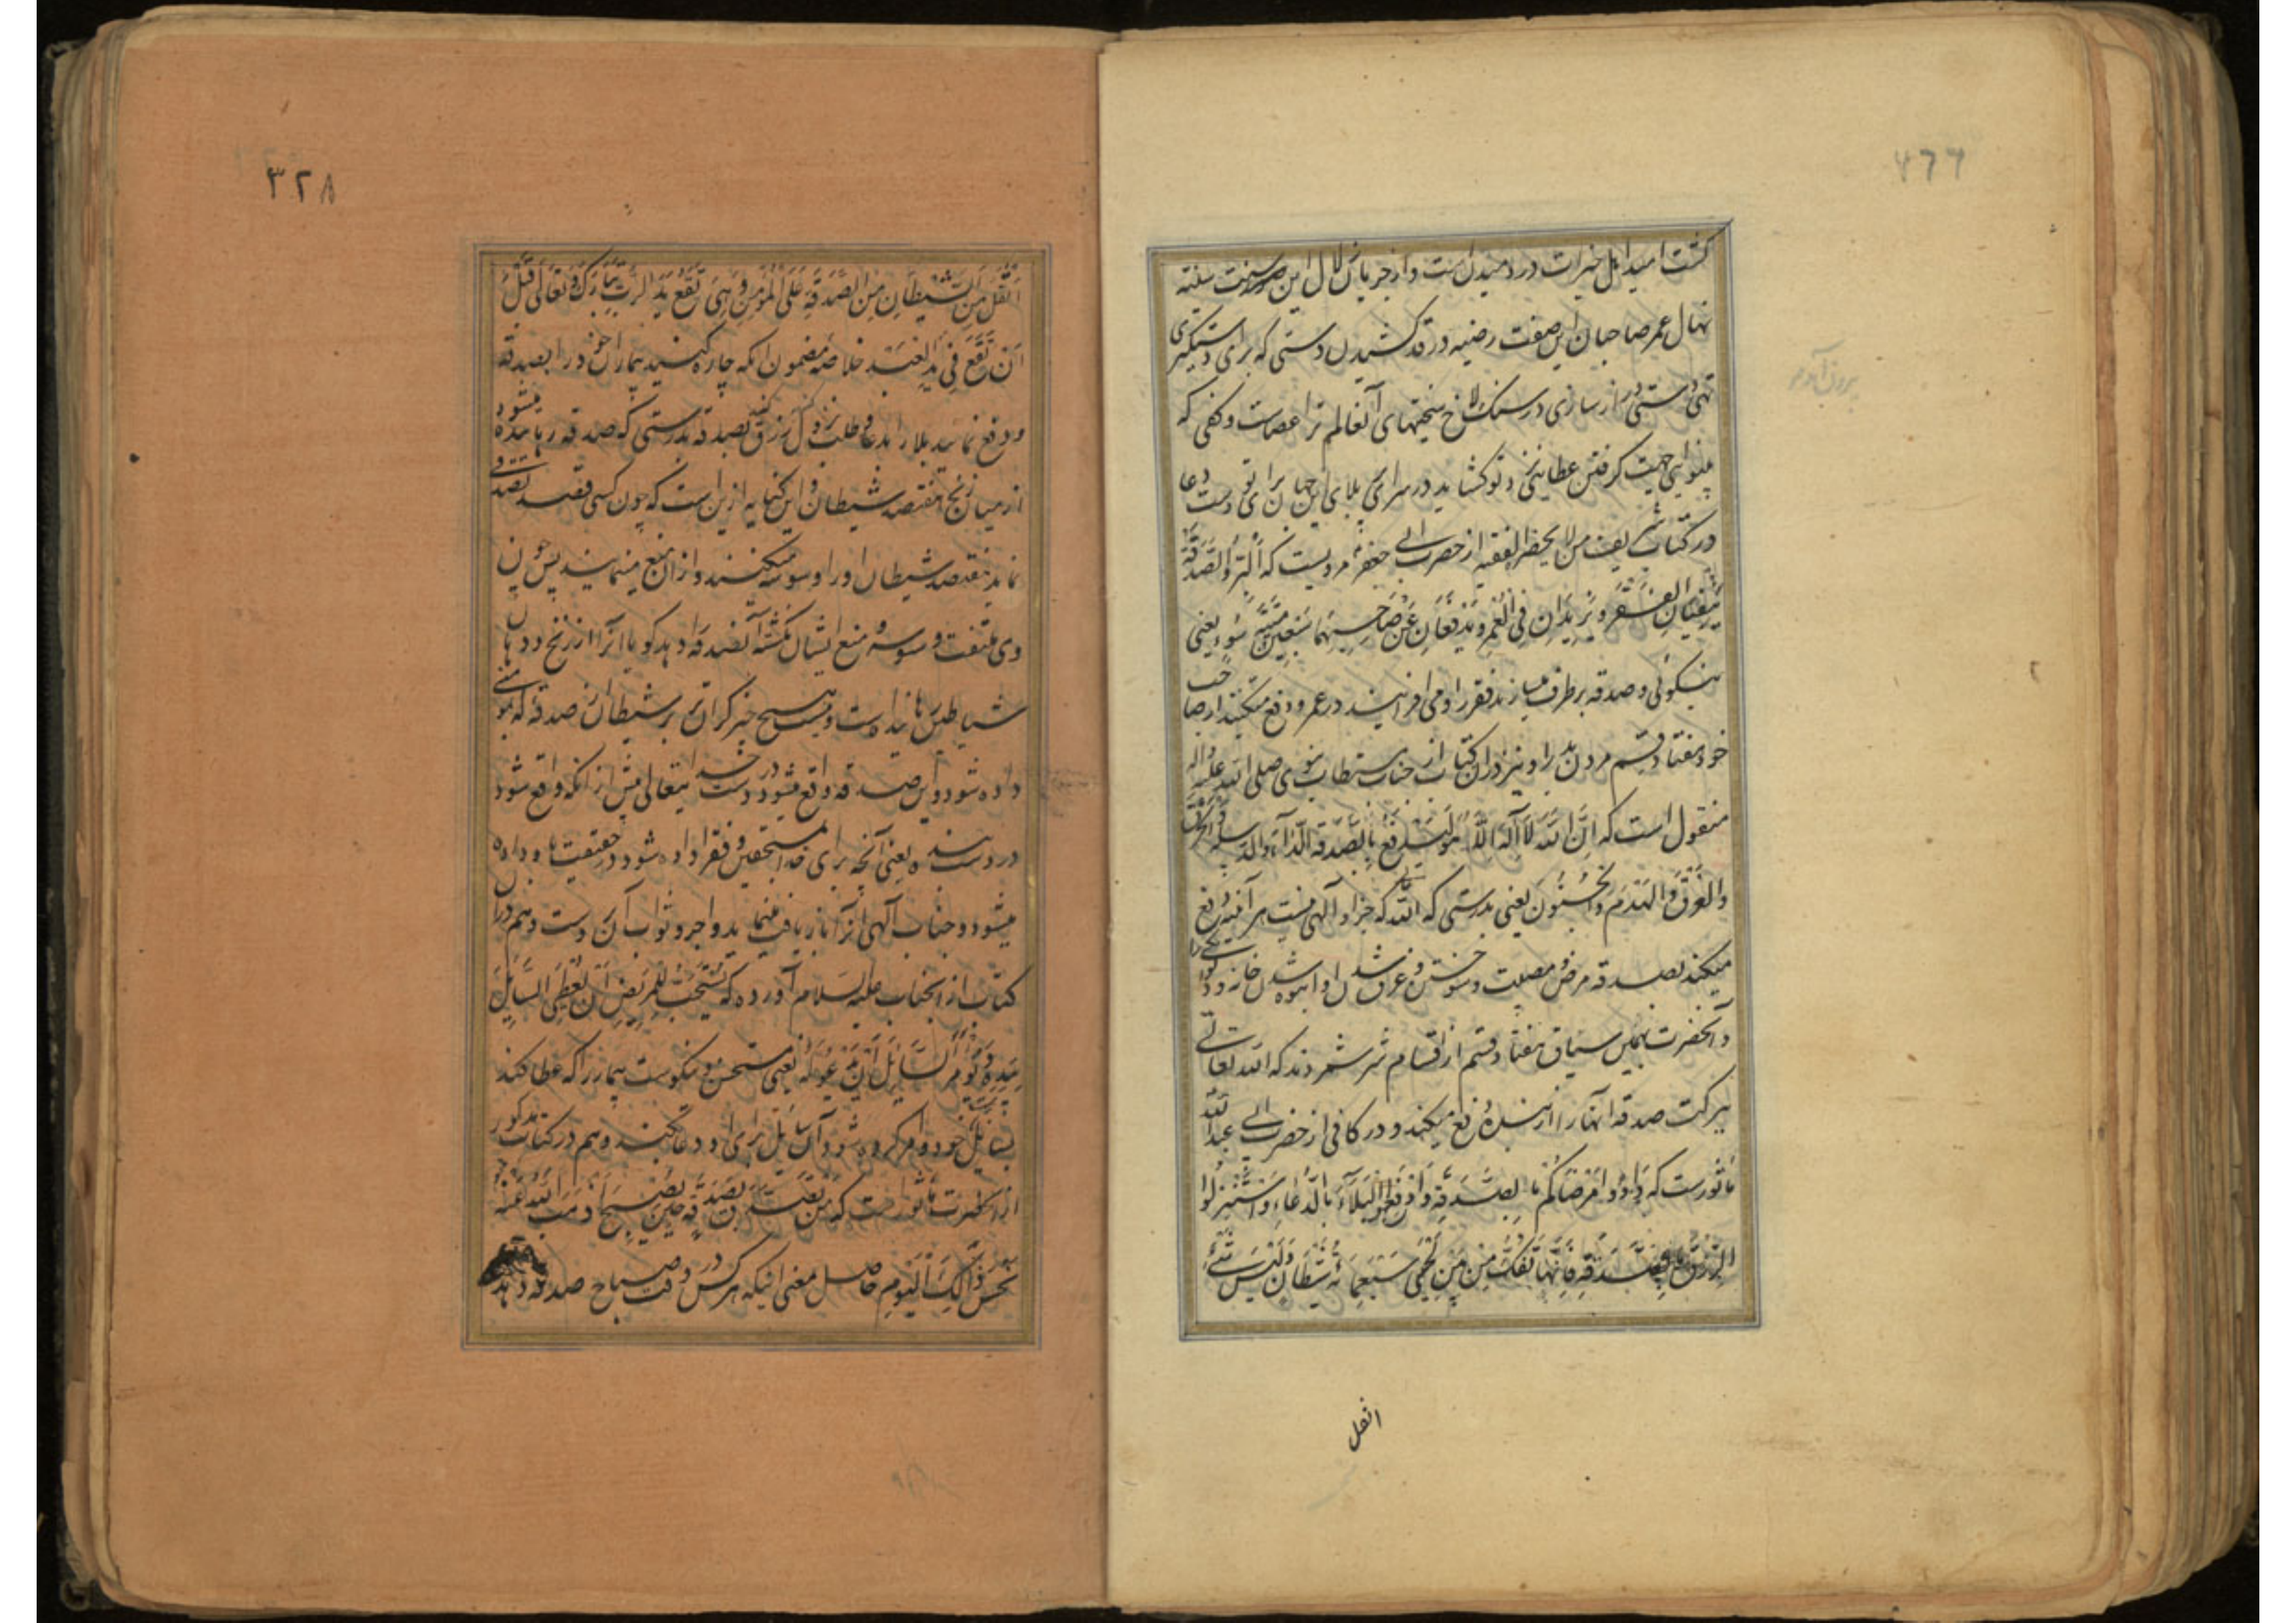 کشت امید اهل خیرات در دمیدن است و از جریان زلال این
نهال عمر صاحبان این صفت رضیه در قد کشیدن دستی که برای دستگیری
تهی دستی دراز سازی در سنگلاخ سختیهای آنعالم ترا عصاست و کفی که
بینوایی جهت گرفتن عطا پیش تو گشاید در سرای پر بلای این جهان برای تو دست دعا
در کتاب شریف من لا یحضر الفقیه از حضرت ابی جعفر مرویست که اَلْبِرُّ وَالصَّدَقَةُ
یَنْفِیَانِ الْفَقْرَ وَ یَزِیدَانِ فِی الْعُمْرِ وَ یَدْفَعَانِ عَنْ صَاحِبِهِمَا سَبْعِینَ مِیتَةَ سُوءٍ یعنی
نیکوئی و صدقه برطرف میسازند فقر را و می افزایند در عمر و دفع میکنند از صاحب
خود هفتاد قسم مردن بد را و نیز در ان کتاب از جناب مستطاب نبوی صلی الله علیه واله
منقول است که اِنَّ اللّهَ لَا اِلَهَ اِلَّا هُوَ لَیَدْفَعُ بِالصَّدَقَةِ الدَّاءَ وَالدُّبَیْلَةَ وَالْحَرَقَ
وَالْغَرَقَ وَالْهَدْمَ وَالْجُنُونَ یعنی بدرستی که الله که جز او الهی نیست هر آینه دفع
میکند بصدقه مرض و مصیبت و سوختن و غرق شدن و خانه و
و آنحضرت بهمین سیاق هفتاد قسم از اقسام شر شمردند که الله تعالی
ببرکت صدقه آنها را از بنده دفع میکند و در کافی از حضرت ابی عبد الله
ماثورست که دَاوُوا مَرْضَاکُمْ بِالصَّدَقَةِ وَادْفَعُوا الْبَلَاءَ بِالدُّعَاءِ وَاسْتَنْزِلُوا
الرِّزْقَ بِالصَّدَقَةِ فَاِنَّهَا تَفُکُّ مِنْ بَیْنِ لُحِیِّ سَبْعِمِائَةِ شَیْطَانٍ وَلَیْسَ شَیْءٌ
اثقل
٣٢٨
اَثْقَلَ مِنَ الشَّیْطَانِ مِنَ الصَّدَقَةِ عَلَی الْمُؤْمِنِ وَ هِیَ تَقَعُ یَدَ الرَّبِّ تَبَارَکَ وَ تَعَالَی قَبْلَ
اَنْ تَقَعَ فِی یَدِ الْعَبْدِ خلاصه مضمون انکه چاره کنید بیماران خود را بصدقه
و دفع نمایید بلا را بدعا و طلب نزول رزق کنید بصدقه بدرستی که صدقه رباینده میشود
از میان زنخ هفتصد شیطان و این کنایه ازین است که چون کسی قصد تصدقی
نماید هفتصد شیطان او را وسوسه میکنند و از ان منع مینمایند پس چون
وی ملتفت وسوسه و منع ایشان نگشته آن تصدق را دهد کویا آنرا از زنخ و دهان
شیاطین رهانیده است و نیست هیچ چیز گران تر بر شیطان از صدقه که بمؤمنی
داده شود و این صدقه واقع میشود در دست خدایتعالی پیش از آنکه واقع شود
در دست بنده یعنی آنچه برای خدا بمستحقین و فقرا داده شود در حقیقت باو داده
میشود و جناب الهی آنرا بازیافت مینماید و اجر و ثواب آن و هم در ان
کتاب از انجناب علیه السلام آورده که یُسْتَحَبُّ لِلْمَرِیضِ اَنْ یُعْطِیَ السَّائِلَ
بِیَدِهِ وَ یَأْمُرَ السَّائِلَ اَنْ یَدْعُوَ لَهُ یعنی مستحسن و نیکوست بیمار را که عطا کند
بسائل بدست خود و امر کرده شود آن سائل برای او دعا کند و هم در کتاب مذکور
از انحضرت ماثور است که مَنْ تَصَدَّقَ بِصَدَقَةٍ حِینَ یُصْبِحُ اَذْهَبَ اللّهُ عَنْهُ
نَحْسَ ذَلِکَ الْیَوْمِ حاصل معنی اینکه هر کس در وقت صباح صدقه دهد